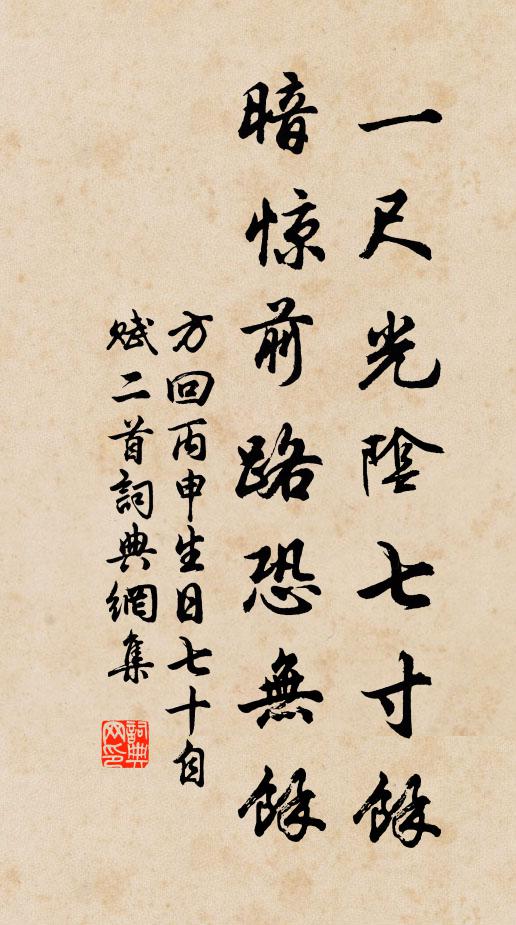 一尺光陰七寸餘
暗惊前路恐無餘
方回丙申生日七十自
賦二首詞典網集
詞典网印